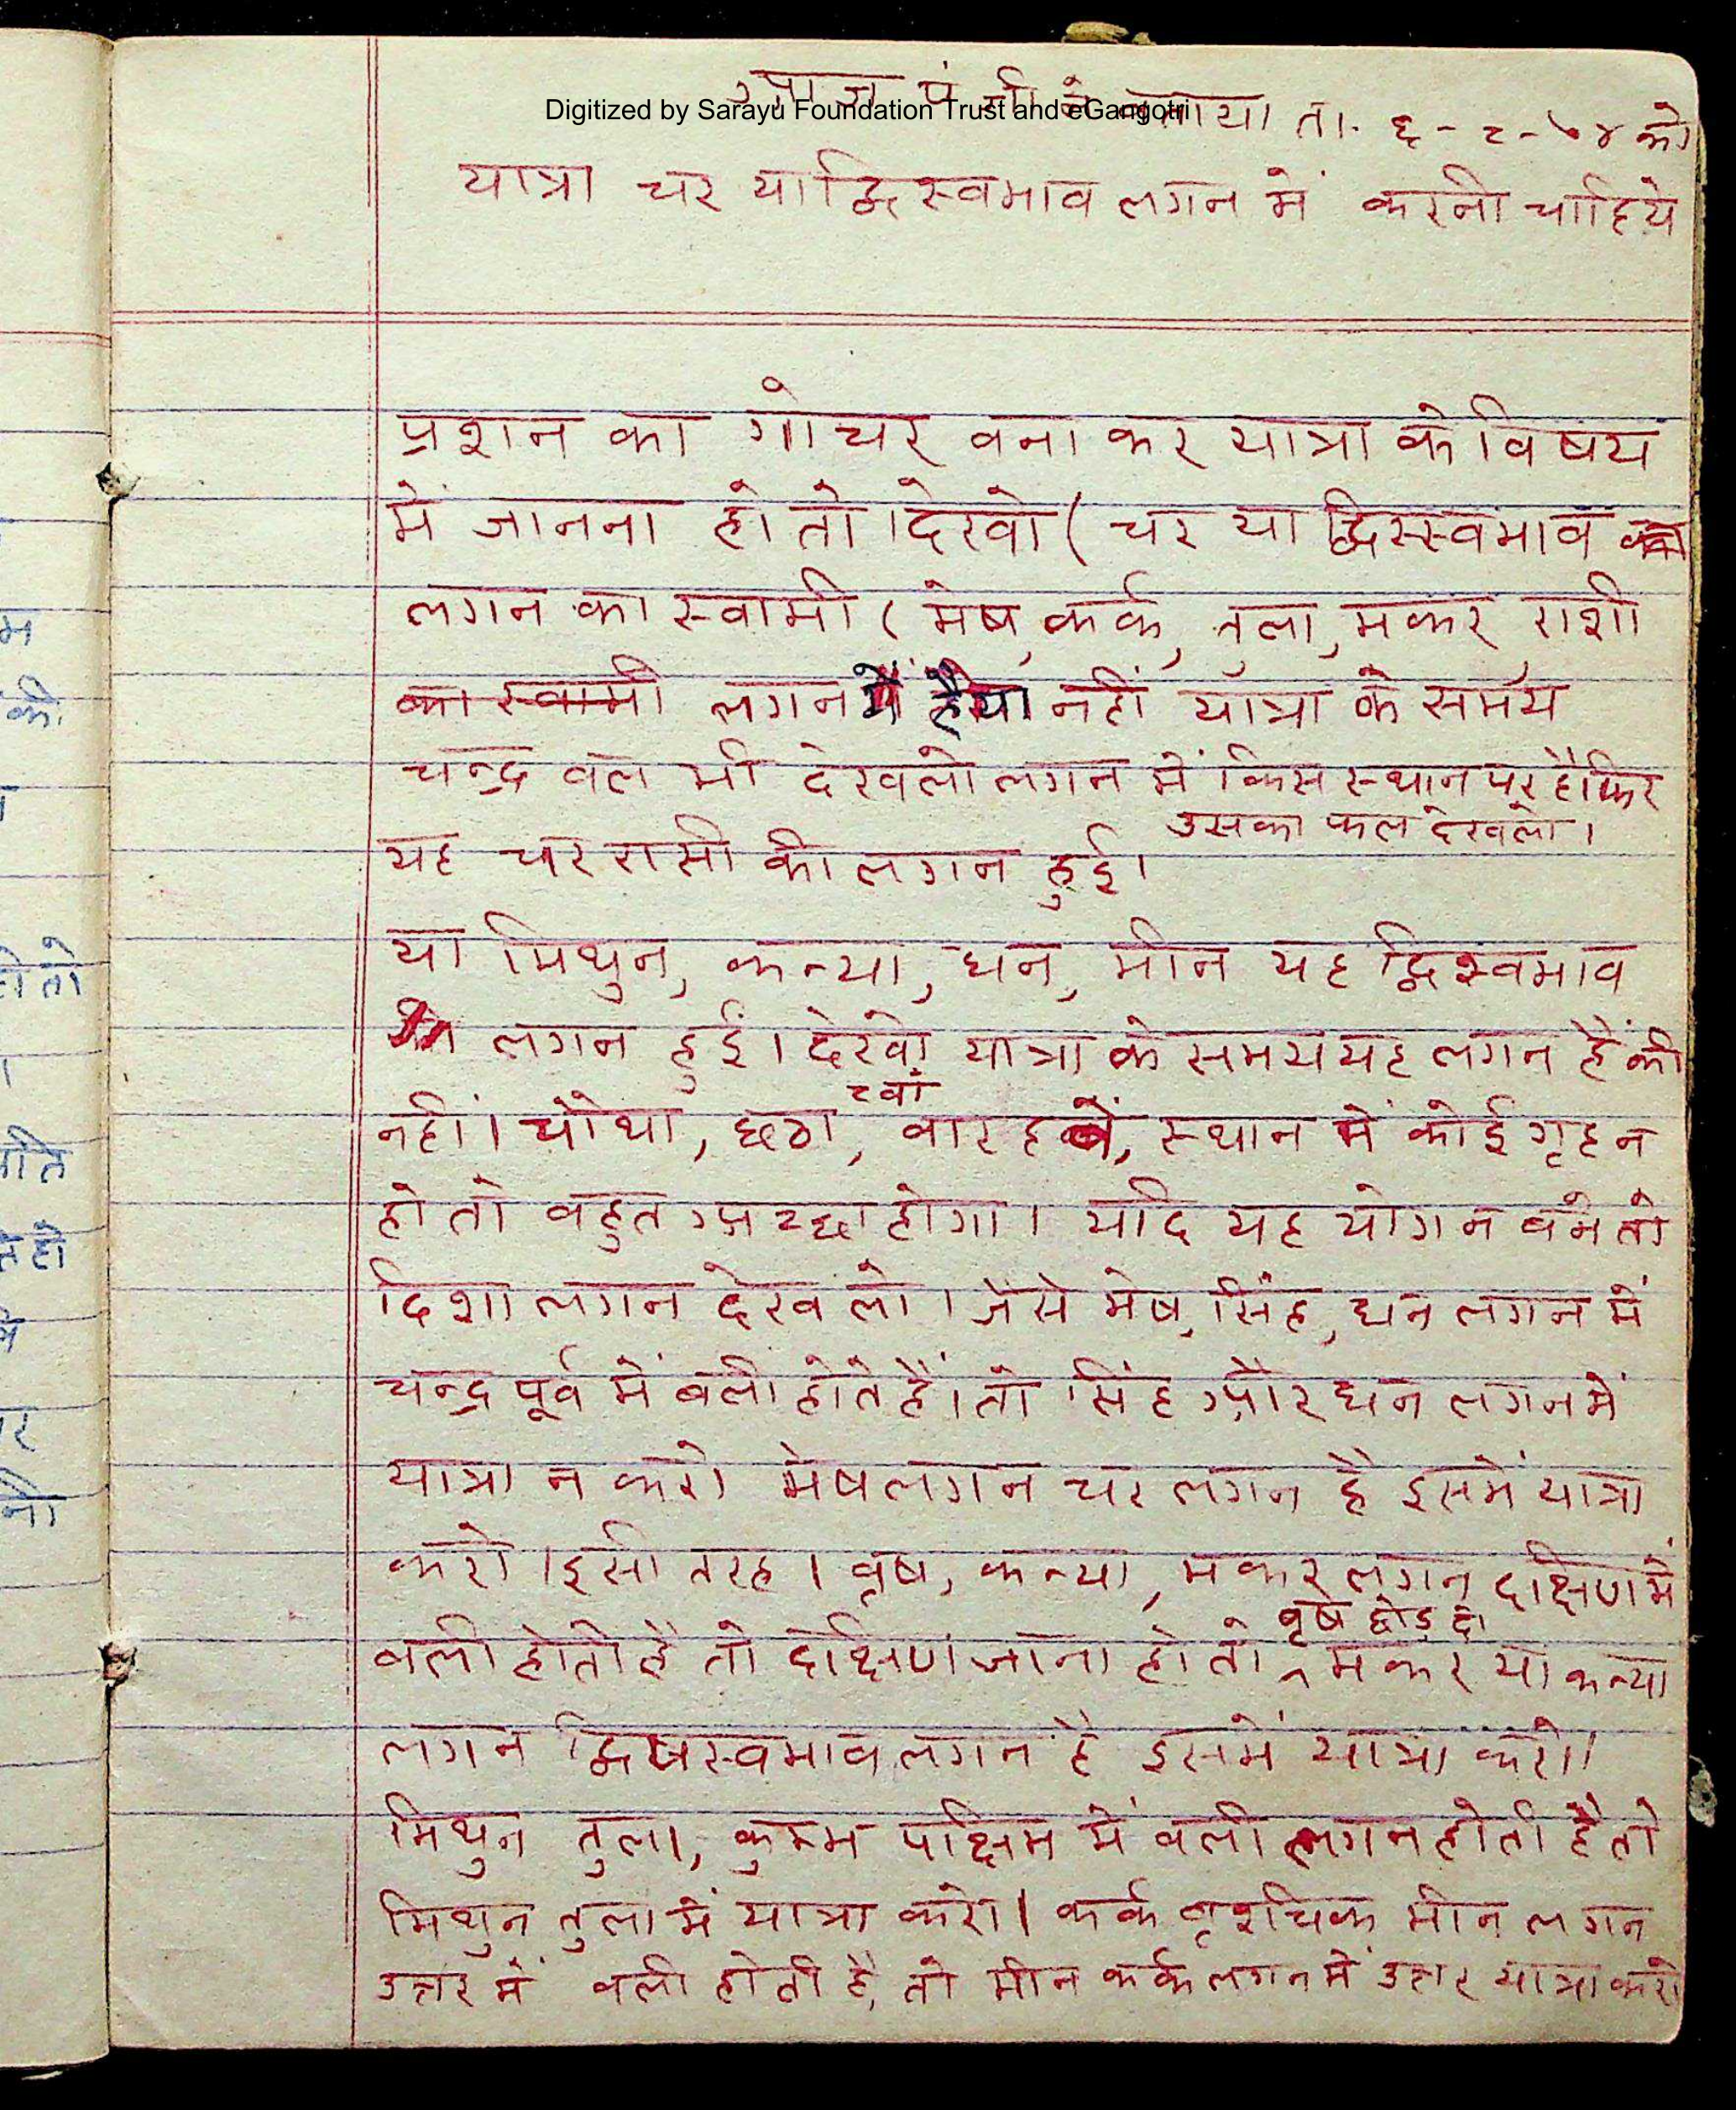 आज पं जी ने बताया ता. ६-८-७४ को
Digitized by Sarayu Foundation Trust and eGangotri
यात्रा चर या द्विस्वभाव लगन में करनी चाहिये
प्रशन का गोचर वना कर यात्रा के विषय
में जानना हो तो देखो ( चर या द्विस्स्वभाव
लगन का स्वामी ( मेष, कर्क, तुला, मकर राशी
का स्वामी लगन में है या नहीं यात्रा के समय
चन्द्र वल भी देखलो लगन में किस स्थान पर है फिर
उसका फल देखलो।
यह चर रासी की लगन हुई।
या मिथुन, कन्या, धन, मीन यह द्विस्वभाव
लगन हुई। देखो यात्रा के समय यह लगन हैं की
८वां
नहीं। चोथा, छठा, वारहवें, स्थान में कोई गृह न
हो तो वहुत अच्छा होगा। यदि यह योग न वने तो
दिशा लगन देख लो। जैसे मेष, सिंह, धन लगन में
चन्द्र पूर्व में वली होते हैं। तो सिंह और धन लगन में
यात्रा न करो मेष लगन चर लगन है इसमें यात्रा
करो। इसी तरह। वृष, कन्या, मकर लगन दक्षिण में
वृष छोड़ दो
वली होती है तो दक्षिण जाना हो तो ^ मकर या कन्या
लगन द्विषस्वभाव लगन है इसमें यात्रा करो।
मिथुन तुला, कुम्भ पक्षिम में वली लगन होती है तो
मिथुन तुला में यात्रा करो। कर्क वृशचिक मीन लगन
उत्तर में वली होती है, तो मीन कर्क लगन में उत्तर यात्रा करो
म
की
हो तो